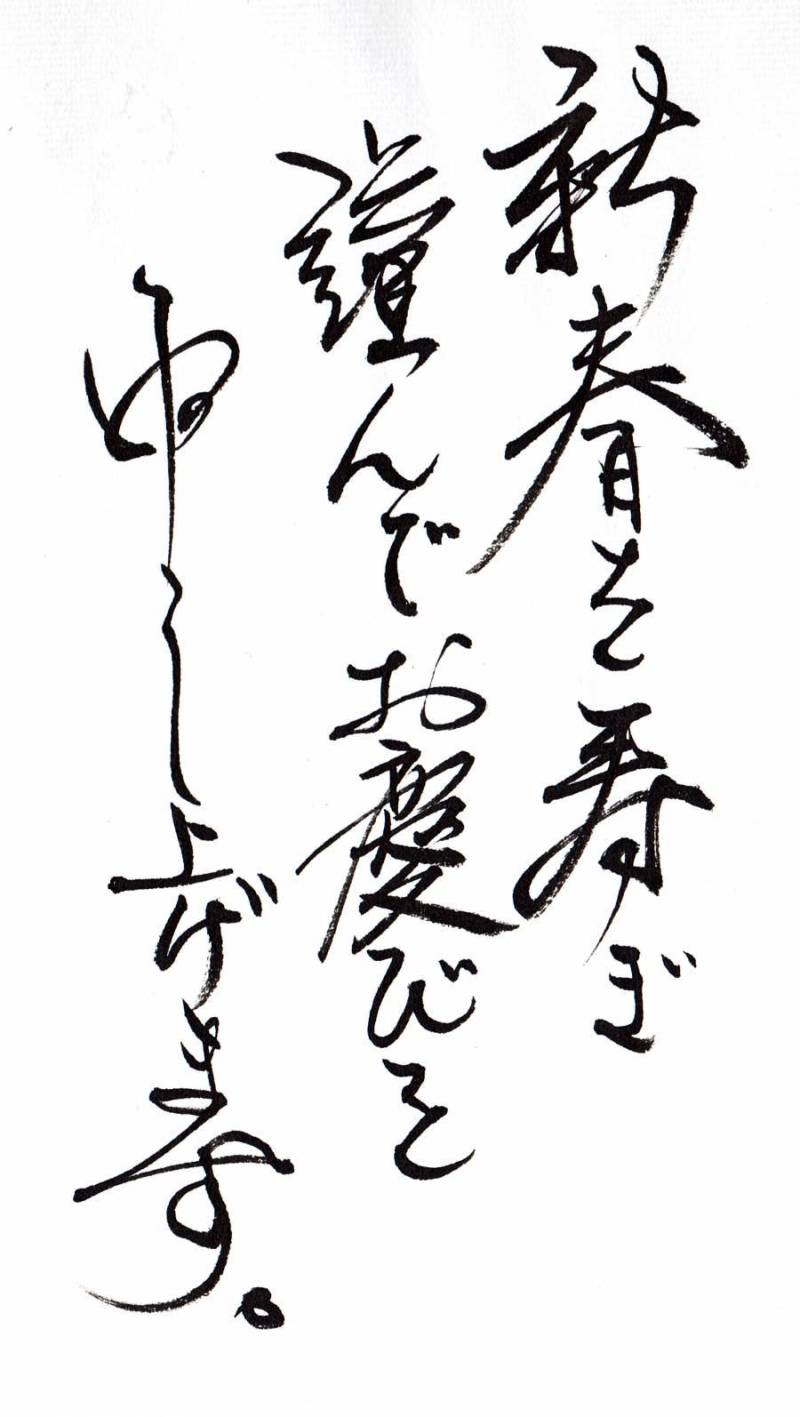 新春を寿ぎ
謹んでお慶びを
申し上げます。